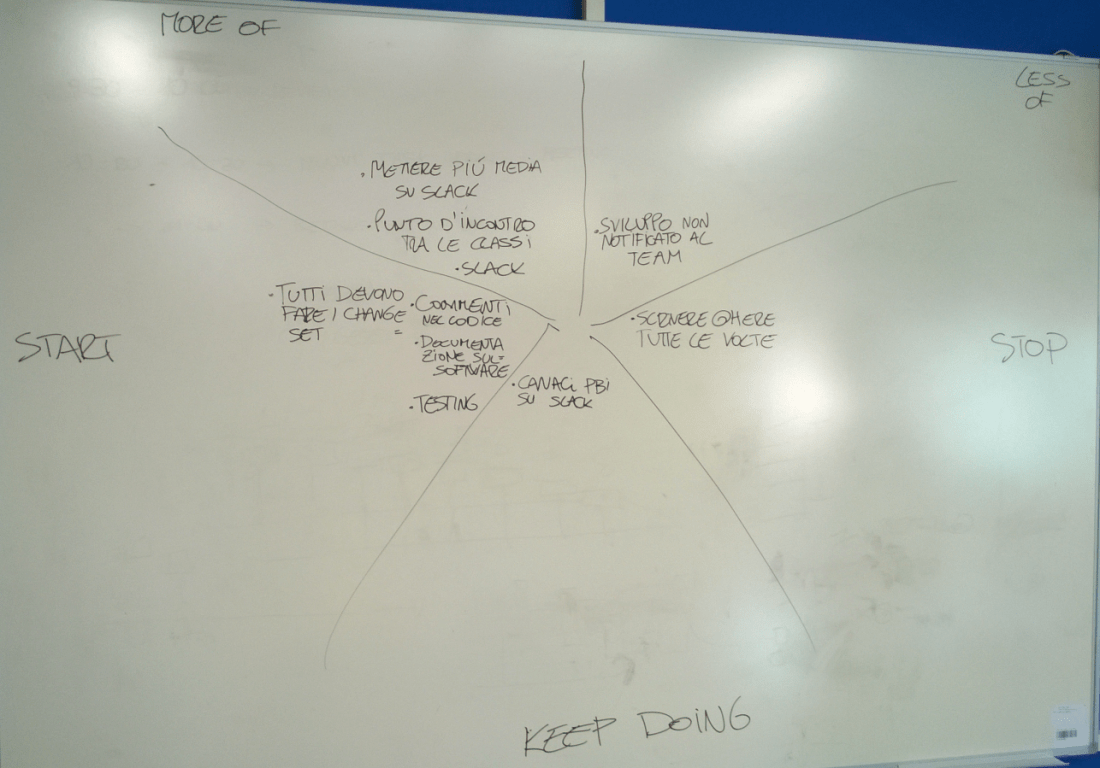 MORE OF
LESS
OF
. METTERE PIÚ MEDIA
SU SLACK
. PUNTO D'INCONTRO
TRA LE CLASSI
. SLACK
. SVILUPPO NON
NOTIFICATO AL
TEAM
START
. TUTTI DEVONO
FARE I CHANGE
SET =
. COMMENTI
NEL CODICE
. DOCUMENTA
ZIONE SUL
SOFTWARE
. TESTING
. SCRIVERE @HERE
TUTTE LE VOLTE
STOP
. CANALI PBI
SU SLACK
KEEP DOING